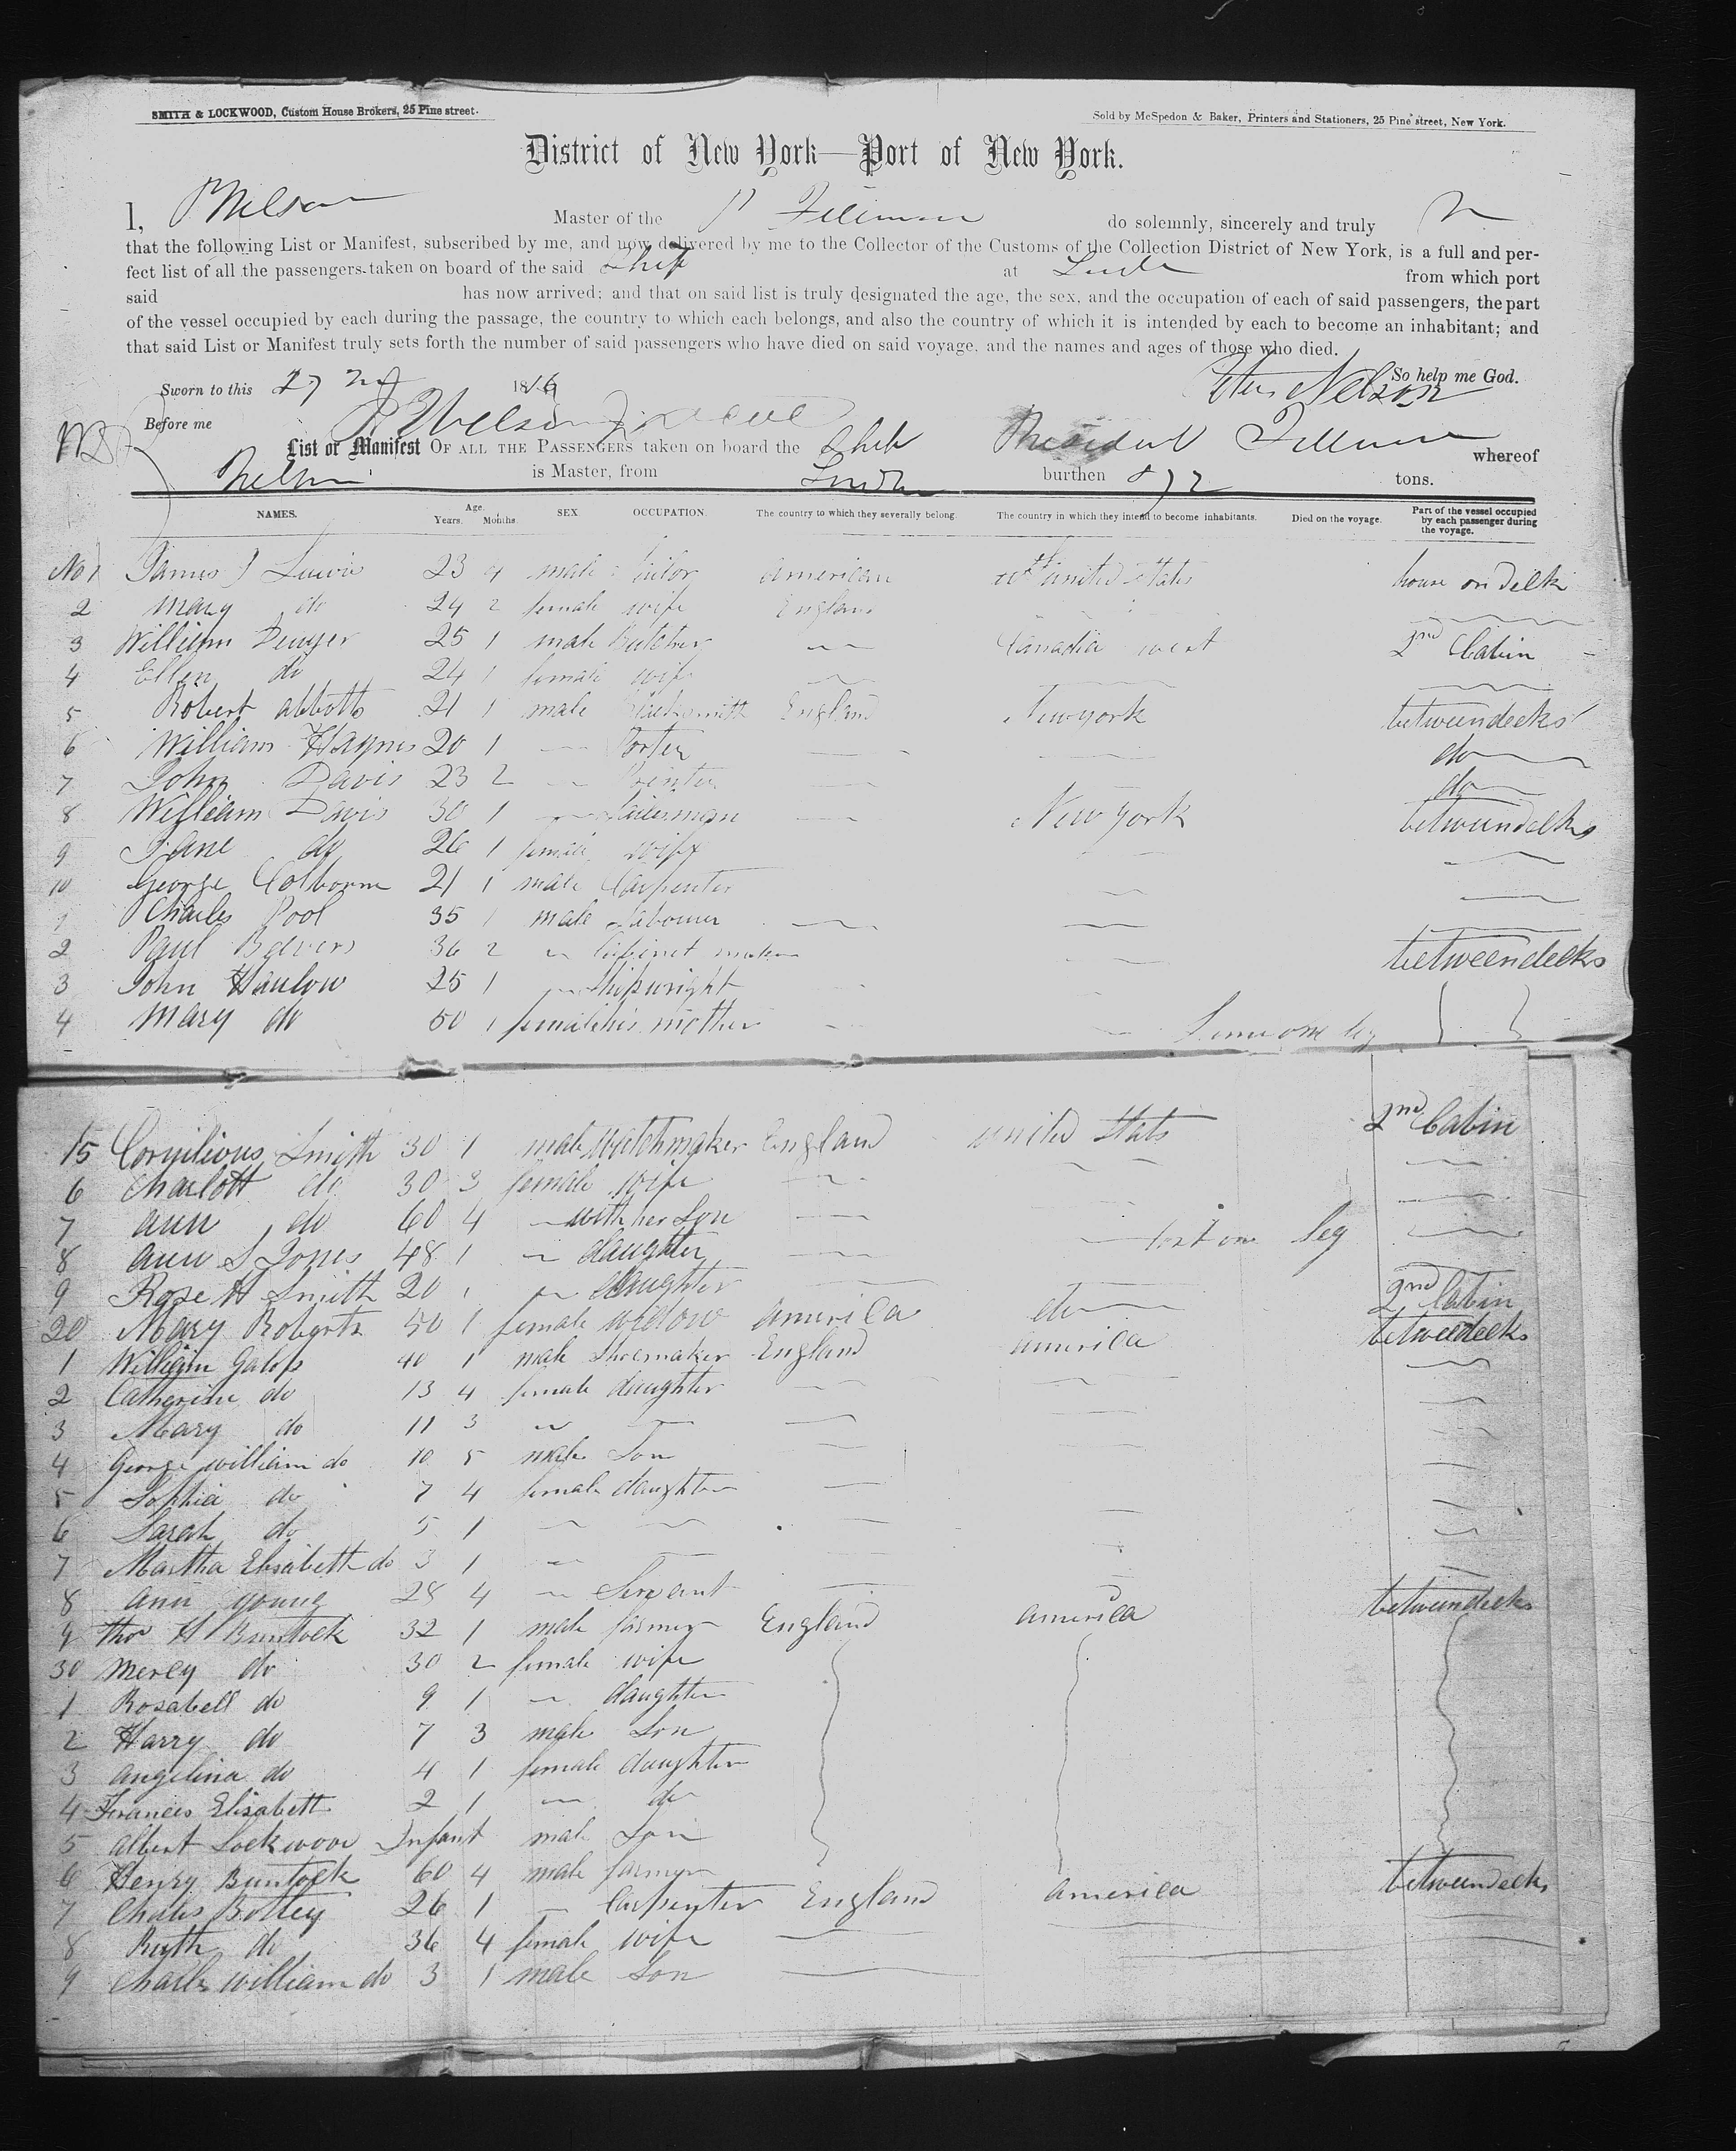 SMITH & LOCKWOOD, Custom House Brokers, 25 Pine street.
Sold by McSpedon & Baker, Printers and Stationers, 25 Pine street, New York.
District of New York—Port of New York.
I, P Nelson Master of the P Fillmore do solemnly, sincerely and truly
that the following List or Manifest, subscribed by me, and now delivered by me to the Collector of the Customs of the Collection District of New York, is a full and per-
fect list of all the passengers taken on board of the said Ship at from which port
said has now arrived; and that on said list is truly designated the age, the sex, and the occupation of each of said passengers, the part
of the vessel occupied by each during the passage, the country to which each belongs, and also the country of which it is intended by each to become an inhabitant; and
that said List or Manifest truly sets forth the number of said passengers who have died on said voyage, and the names and ages of those who died.
So help me God.
Sworn to this 27 18 Peter Nelson
Before me
List or Manifest OF ALL THE PASSENGERS taken on board the Ship President Fillmore whereof
Nelson is Master, from London burthen 872 tons.
NAMES. Age. Years. Months. SEX. OCCUPATION. The country to which they severally belong. The country in which they intend to become inhabitants. Died on the voyage. Part of the vessel occupied by each passenger during the voyage.
No 1 James 23 4 male american united states house on deck
2 Mary do 24 2 female wife England
3 William Dwyer 25 1 male Butcher Canadia west 2nd Cabin
4 Ellen do 24 1 female wife
5 Robert abbotts 21 1 male Blacksmith England Newyork betweendecks
6 William Haynes 20 1 Porter do
7 John Davis 23 2 do
8 William Davis 30 1 New york betweendecks
9 Jane do 26 1 female wife
10 George Colborne 21 1 male Carpenter
1 Charles Pool 35 1 male Labourer
2 Paul Beevers 36 2 Cabinet maker betweendecks
3 John Hanlow 25 1 Shipwright
4 Mary do 50 1 female his mother
15 Cornilious Smith 30 1 male Watchmaker England united Stats 2nd Cabin
6 Charlott do 30 3 female wife
7 ann do 60 4 with her Son
8 ann S Jones 48 1 daughter lost one leg
9 Rose H Smith 20 daughter 2nd Cabin
20 Mary Roberts 50 1 female widow america do betweedecks
1 William Galop 40 1 male Shoemaker England america
2 Catherine do 13 4 female daughter
3 Mary do 11 3
4 George william do 10 5 male Son
5 Sophia do 7 4 female daughter
6 Sarah do 5 1
7 Martha Elisabeth do 3 1
8 ann young 28 4 Servant
9 Thos H Buntock 32 1 male farmer England america betweendecks
30 Mercy do 30 2 female wife
1 Rosabell do 9 1 daughter
2 Harry do 7 3 male Son
3 angelina do 4 1 female daughter
4 Frances Elisabeth 2 1 do
5 albert Lockwood Infant male Son
6 Henry Buntock 60 4 male farmer
7 Charls Bottey 26 1 Carpenter England america betweendecks
8 Ruth do 36 4 female wife
9 Charls william do 3 1 male Son